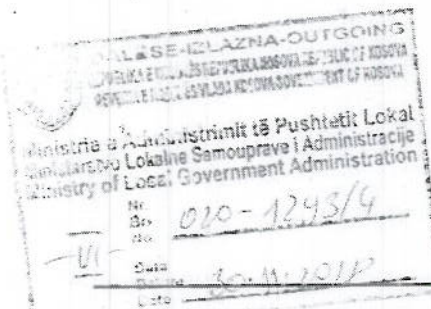 DALËSE-IZLAZNA-OUTGOING
REPUBLIKA E KOSOVËS REPUBLIKA KOSOVA REPUBLIC OF KOSOVA
VLADA KOSOVA GOVERNMENT OF KOSOVA
Ministria e Administrimit të Pushtetit Lokal
Ministarstvo Lokalne Samouprave i Administracije
Ministry of Local Government Administration
Nr.
Br.
No.
020-1293/4
-VI-
Data
Datum
Date